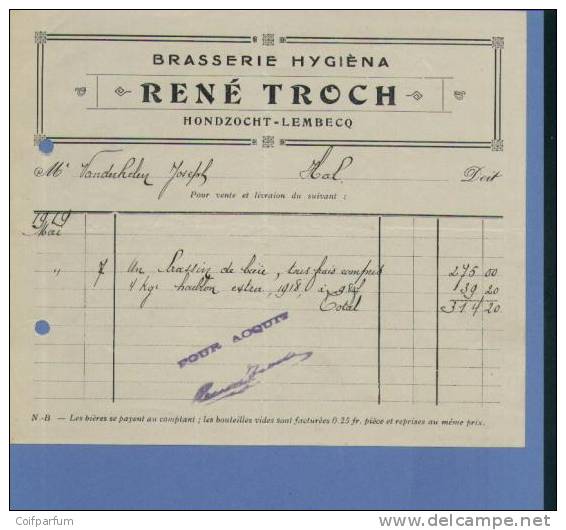 BRASSERIE HYGIÈNA
RENÉ TROCH
HONDZOCHT-LEMBECQ
Mr Vanderhelen Joseph Hal. Doit
Pour vente et livraison du suivant :
1919
Mai
" 7 Un brassin de bière, tous frais compris 275 00
4 kgs houblon extra, 1918, à 39 20
Total 314 20
POUR ACQUIT
N.-B — Les bières se payent au comptant ; les bouteilles vides sont facturées 0.25 fr. pièce et reprises au même prix.
Coifparfum
delcampe.net